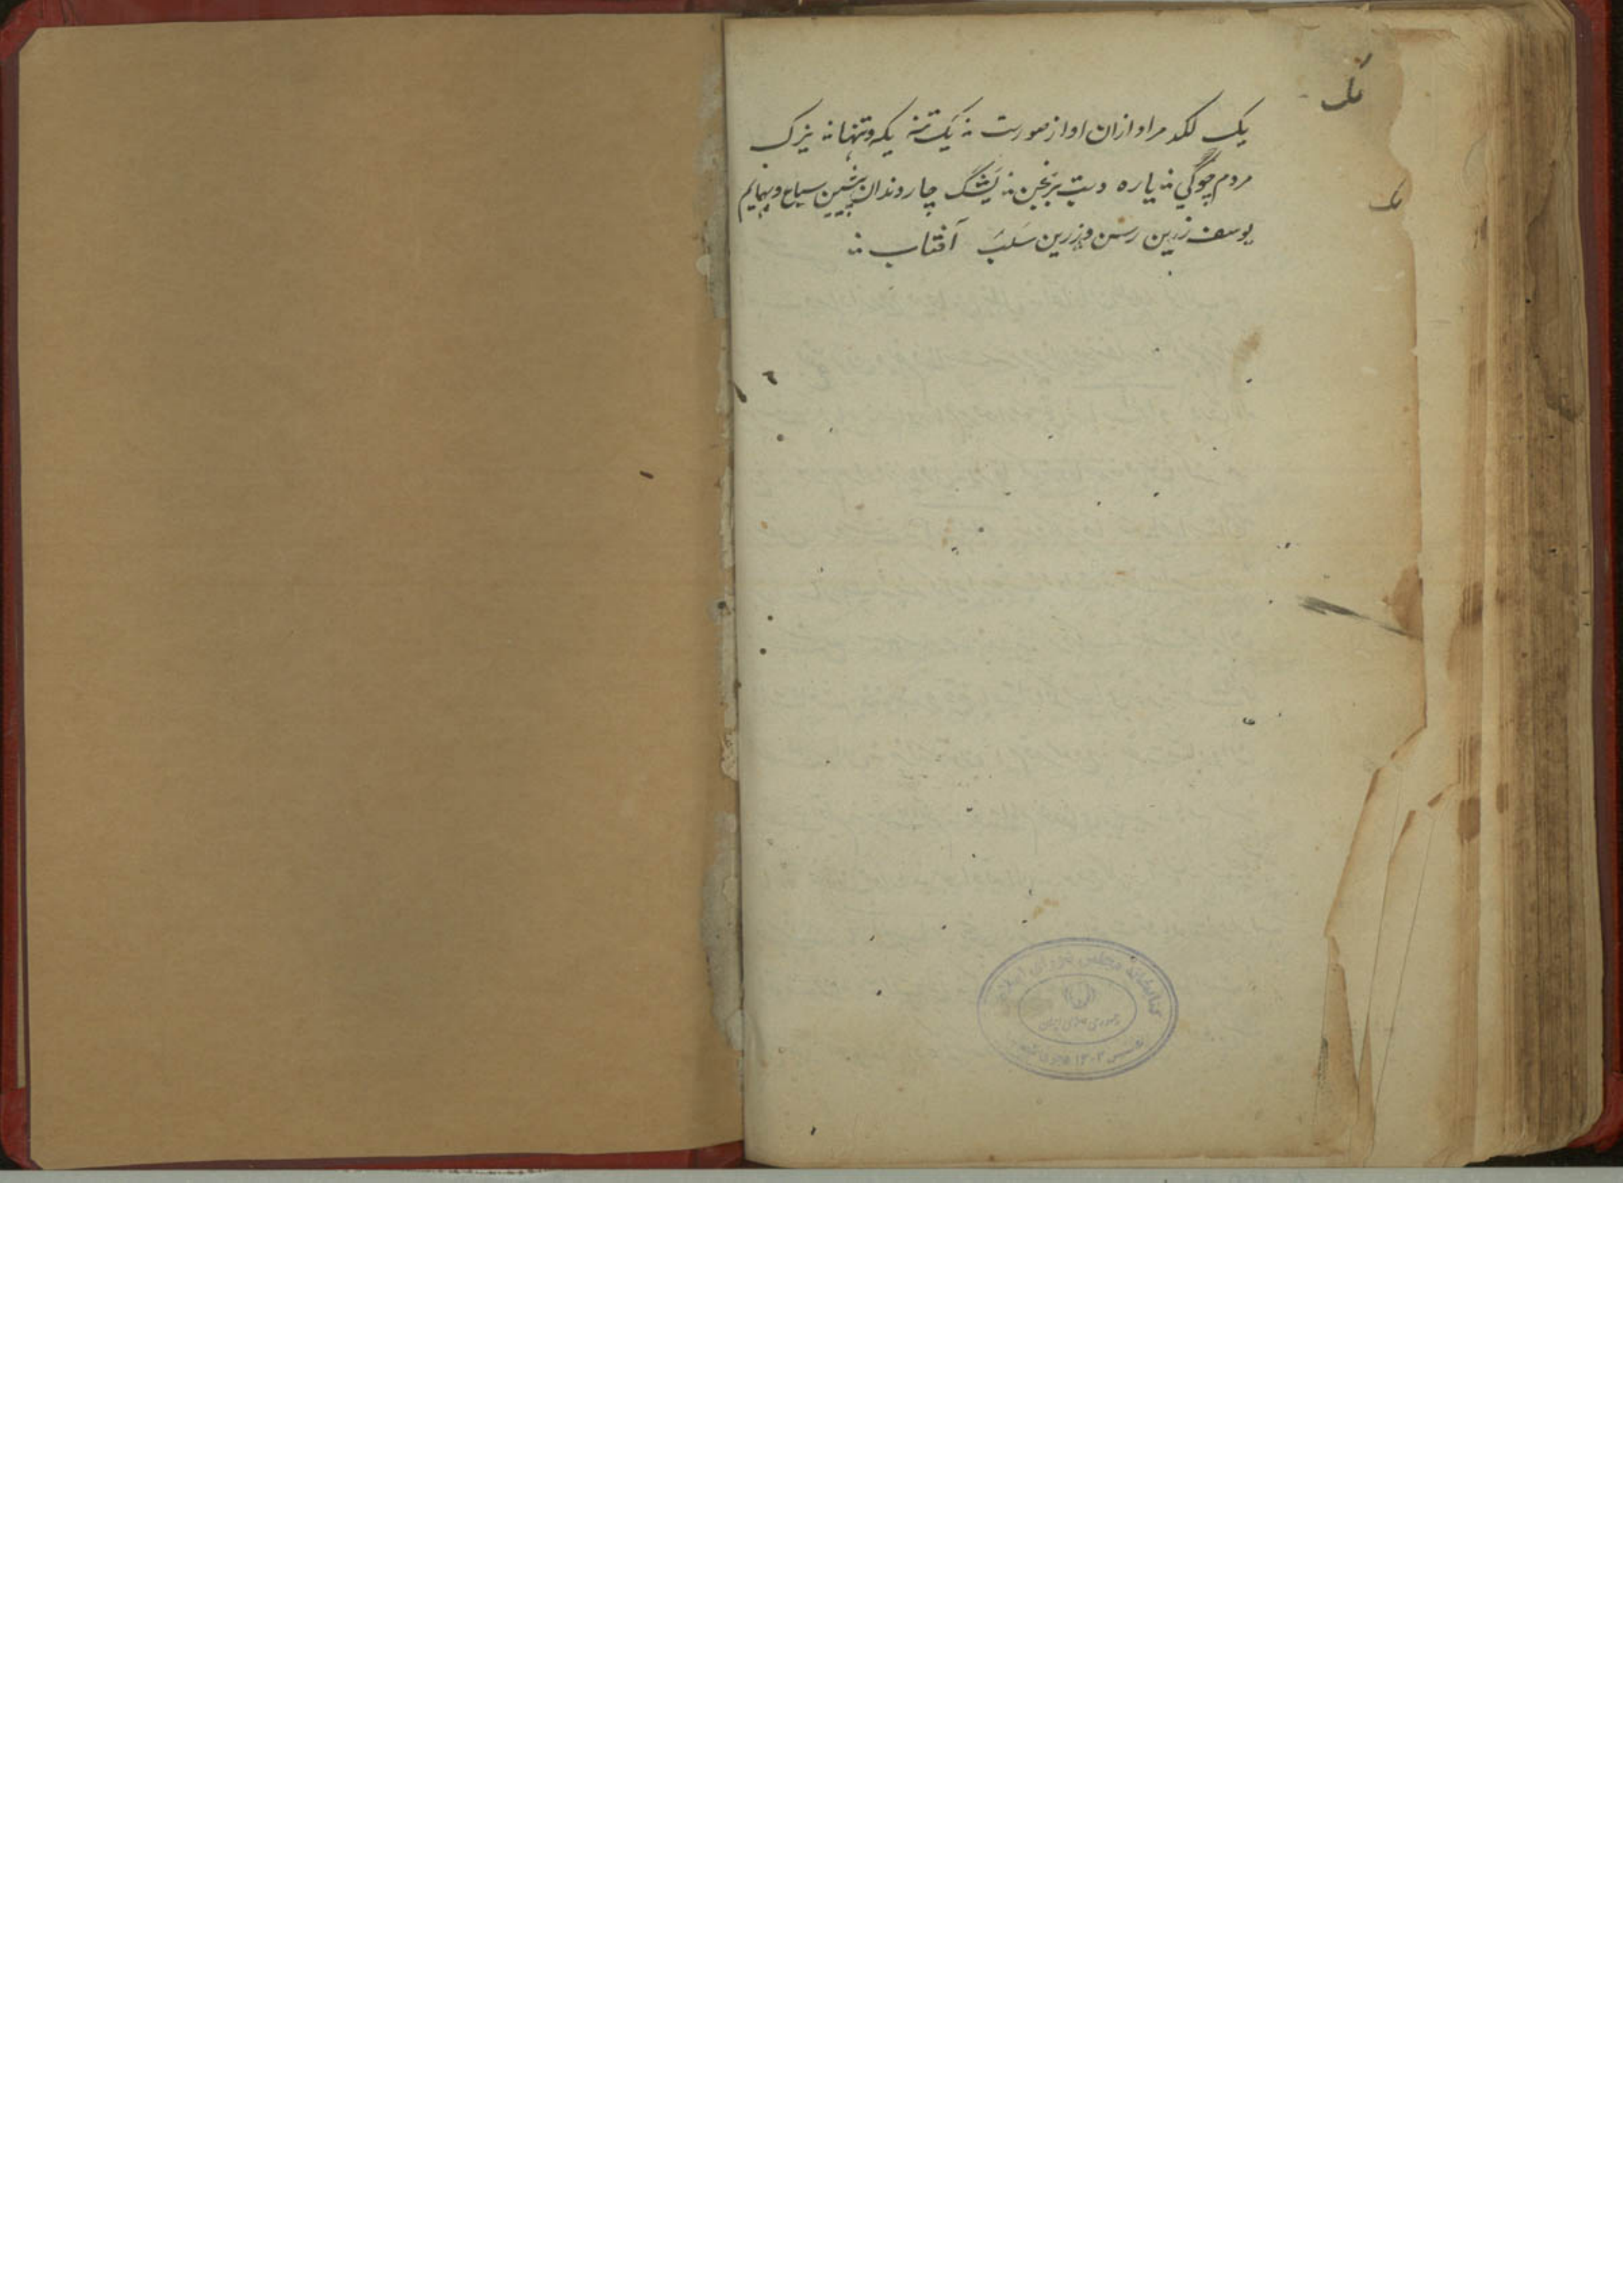 یک لکد مراد ازان اواز صورت ؞ یَک تنه یکه و تنها ؞ یزک
مردم چوکی ؞ یاره دست برنجن ؞ یَشک چار دندان پیشین سباع و بهایم
یوسف زرین رسن و زرین سَلَب آفتاب ؞
کتابخانه مجلس شورای اسلامی
جمهوری اسلامی ایران